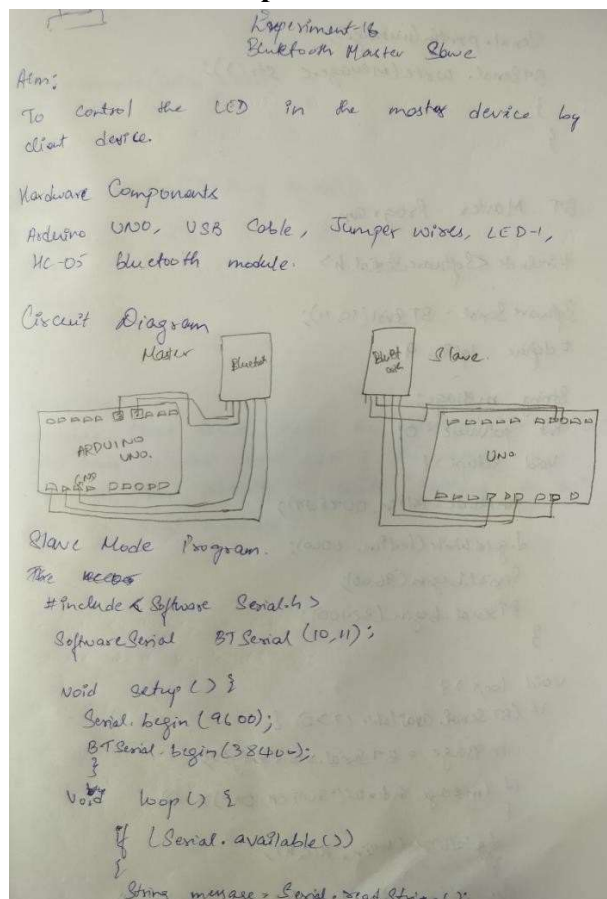 Experiment-18
Bluktooth Master Slave
Aim:
To control the LED in the master device by
client device.
Hardware Components
Arduino UNO, USB Cable, Jumper Wires, LED-1,
HC-05 bluetooth module.
Circuit Diagram
Master
Slave.
ARDUINO
UNO.
GND
UNO
Slave Mode Program.
The
#include < Software Serial.h >
SoftwareSerial BTSerial (10,11);
void setup () {
Serial.begin (9600);
BTSerial.begin (38400);
}
void loop () {
if (Serial.available())
{
String message = Serial.readString();